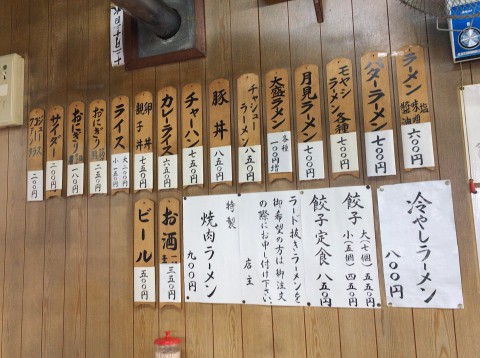 ラーメン
醤油
味噌
塩
六〇〇円
バターラーメン
七〇〇円
モヤシラーメン
各種
七〇〇円
月見ラーメン
七〇〇円
大盛ラーメン
各種
一〇〇円増
チャシューラーメン
八五〇円
豚丼
八五〇円
チャーハン
七五〇円
カレーライス
六五〇円
卵丼
親子丼
七五〇円
ライス
大 二〇〇円
小 一五〇円
おにぎり
二五〇円
おにぎり
一八〇円
サイダー
二〇〇円
二〇〇円
お酒
三五〇円
ビール
五〇〇円
冷やしラーメン
八〇〇円
餃子
大(七個)五五〇円
小(五個)四五〇円
餃子定食
八五〇円
ラード抜きラーメンを
御希望の方は御注文
の際にお申し付け下さい。
店主
特製
焼肉ラーメン
九〇〇円